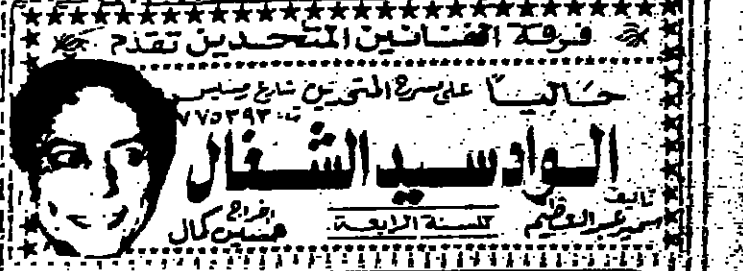 فرقة الفنانين المتحدين تقدم
حاليًا على مسرح المتحدين شارع رمسيس
ت: ٧٧٥٣٩٣
الواد سيد الشغال
تأليف سمير عبد العظيم
للسنة الرابعة
اخراج حسين كمال